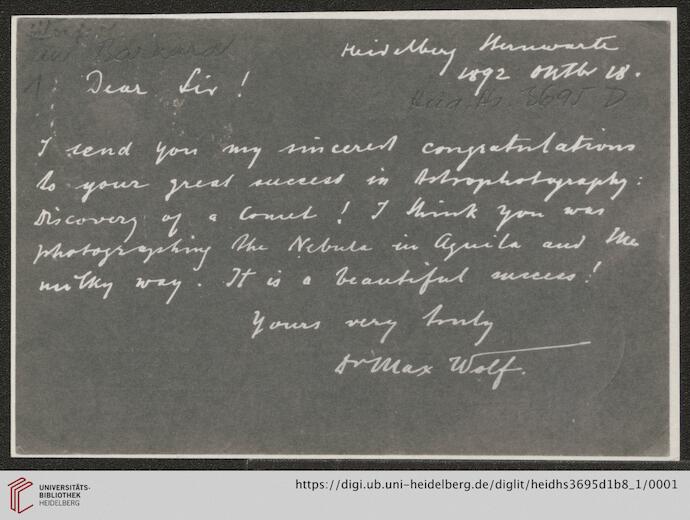 Barnard
Heidelberg Sternwarte
1892 Oktbr 18.
Dear Sir!
Heid. Hs. 3695 D
I send you my sincerest congratulations
to your great success in Astrophotography:
Discovery of a Comet! I think you was
photographing the Nebula in Aquila and the
milky way. It is a beautiful success!
Yours very truly
Dr Max Wolf.
UNIVERSITÄTS-
BIBLIOTHEK
HEIDELBERG
https://digi.ub.uni-heidelberg.de/diglit/heidhs3695d1b8_1/0001